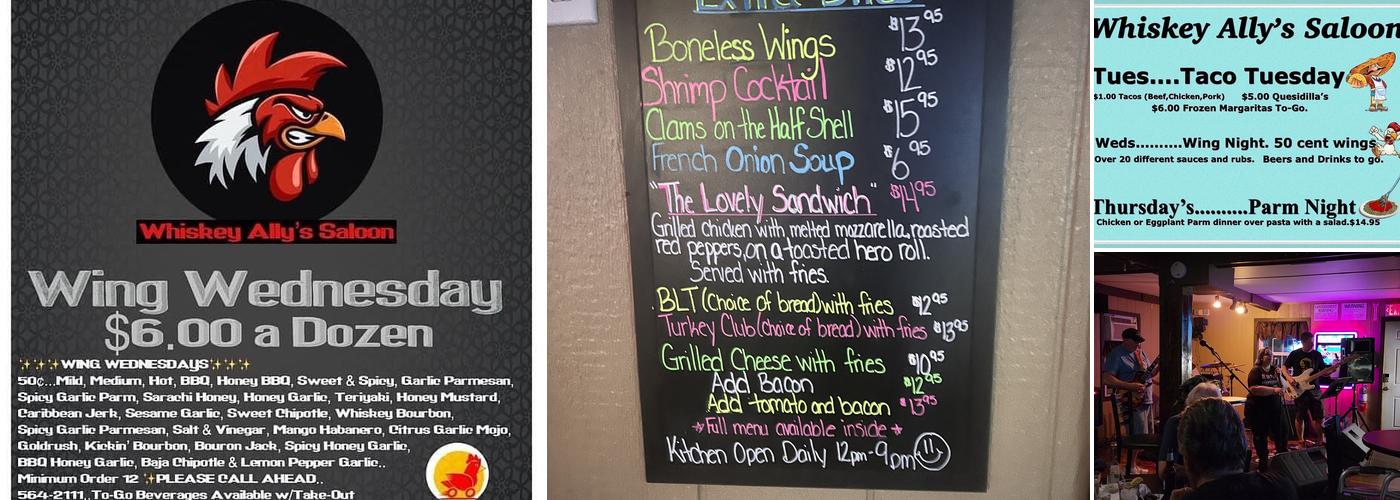 Whiskey Ally's Saloon
Wing Wednesday
$6.00 a Dozen
✨✨✨WING WEDNESDAYS✨✨✨
50¢...Mild, Medium, Hot, BBQ, Honey BBQ, Sweet & Spicy, Garlic Parmesan,
Spicy Garlic Parm, Sarachi Honey, Honey Garlic, Teriyaki, Honey Mustard,
Caribbean Jerk, Sesame Garlic, Sweet Chipotle, Whiskey Bourbon,
Spicy Garlic Parmesan, Salt & Vinegar, Mango Habanero, Citrus Garlic Mojo,
Goldrush, Kickin' Bourbon, Bouron Jack, Spicy Honey Garlic,
BBQ Honey Garlic, Baja Chipotle & Lemon Pepper Garlic..
Minimum Order 12 ✨PLEASE CALL AHEAD..
564-2111..To-Go Beverages Available w/Take-Out
Boneless Wings $13.95
Shrimp Cocktail $12.95
Clams on the Half Shell $15.95
French Onion Soup $6.95
"The Lovely Sandwich" $14.95
Grilled chicken with melted mozzarella, roasted
red peppers, on a toasted hero roll.
Served with fries.
BLT (choice of bread) with fries $12.95
Turkey Club (choice of bread) with fries $13.95
Grilled Cheese with fries $10.95
Add Bacon $12.95
Add tomato and bacon $13.95
Full menu available inside
Kitchen Open Daily 12pm-9pm
Whiskey Ally's Saloon
Tues....Taco Tuesday
$1.00 Tacos (Beef,Chicken,Pork) $5.00 Quesidilla's
$6.00 Frozen Margaritas To-Go.
Weds..........Wing Night. 50 cent wings
Over 20 different sauces and rubs. Beers and Drinks to go.
Thursday's..........Parm Night
Chicken or Eggplant Parm dinner over pasta with a salad.$14.95